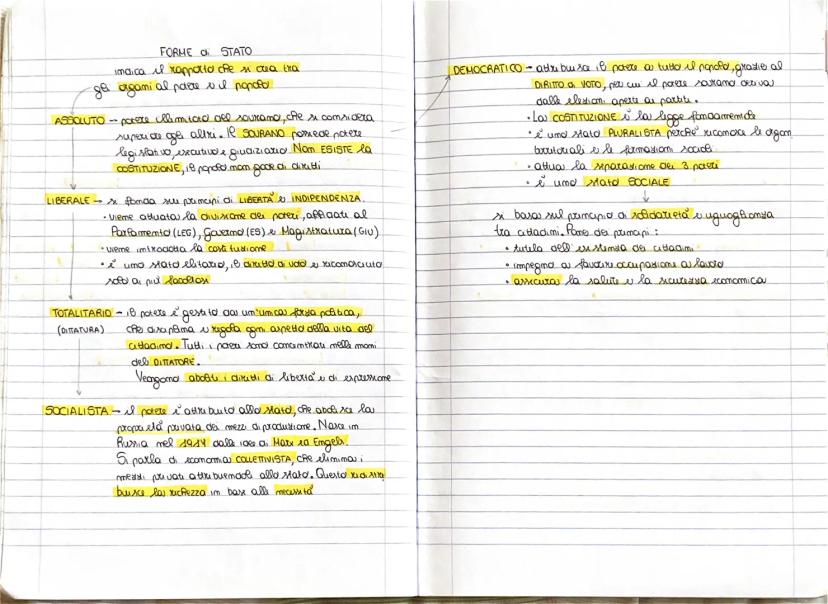 FORME di STATO
indica il rapporto che si crea tra
gli organi al potere e il popolo
ASSOLUTO → potere illimitato del sovrano, che si considera
superiore agli altri. Il SOVRANO possiede potere
legislativo, esecutivo e giudiziario. Non ESISTE la
COSTITUZIONE, il popolo non gode di diritti
LIBERALE → si fonda sui principi di LIBERTÀ e INDIPENDENZA.
• viene attuata la divisione dei poteri, affidati al
Parlamento (LEG), Governo (ES) e Magistratura (GIU)
• viene introdotta la costituzione
• è uno stato elitario, il diritto di voto è riconosciuto
solo ai più facoltosi
TOTALITARIO → il potere è gestito da un'unica forza politica,
(DITTATURA) che disciplina e regola ogni aspetto della vita del
cittadino. Tutti i poteri sono concentrati nelle mani
del DITTATORE.
Vengono aboliti i diritti di libertà e di espressione
SOCIALISTA → il potere è attribuito allo stato, che abolisce la
proprietà privata dei mezzi di produzione. Nasce in
Russia nel 1917 dalle idee di Marx ed Engels.
Si parla di economia COLLETTIVISTA, che elimina i
mezzi privati attribuendoli allo stato. Questo ridistri
buisce la ricchezza in base alle necessità
DEMOCRATICO → attribuisce il potere a tutto il popolo, grazie al
DIRITTO di VOTO, per cui il potere sovrano deriva
dalle elezioni aperte ai partiti.
• La COSTITUZIONE è la legge fondamentale
• è uno stato PLURALISTA perché riconosce le organi
territoriali e le formazioni sociali
• attua la separazione dei 3 poteri
• è uno stato SOCIALE
si basa sul principio di solidarietà e uguaglianza
tra cittadini. Pone dei principi:
• tutela dell'esistenza dei cittadini
• impegno a favorire occupazione al lavoro
• assicura la salute e la sicurezza economica